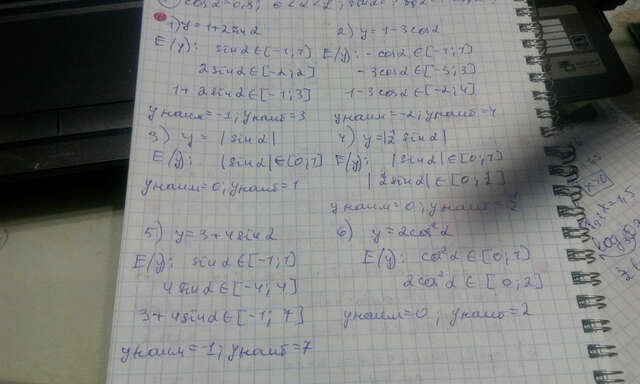 1) y = 1+2sinα
E(y): sinα∈[-1;1]
2sinα∈[-2;2]
1+2sinα∈[-1;3]
yнаим=-1; yнаиб=3
2) y = 1-3cosα
E(y): -cosα∈[-1;1]
-3cosα∈[-3;3]
1-3cosα∈[-2;4]
yнаим=-2; yнаиб=4
3) y = |sinα|
E(y): |sinα|∈[0;1]
yнаим=0; yнаиб=1
4) y=|2 sinα|
E(y): |sinα|∈[0;1]
|2sinα|∈[0;2]
yнаим=0; yнаиб=2
5) y=3+4sinα
E(y): sinα∈[-1;1]
4sinα∈[-4;4]
3+4sinα∈[-1;7]
yнаим=-1; yнаиб=7
6) y=2cos²α
E(y): cos²α∈[0;1]
2cos²α∈[0;2]
yнаим=0; yнаиб=2